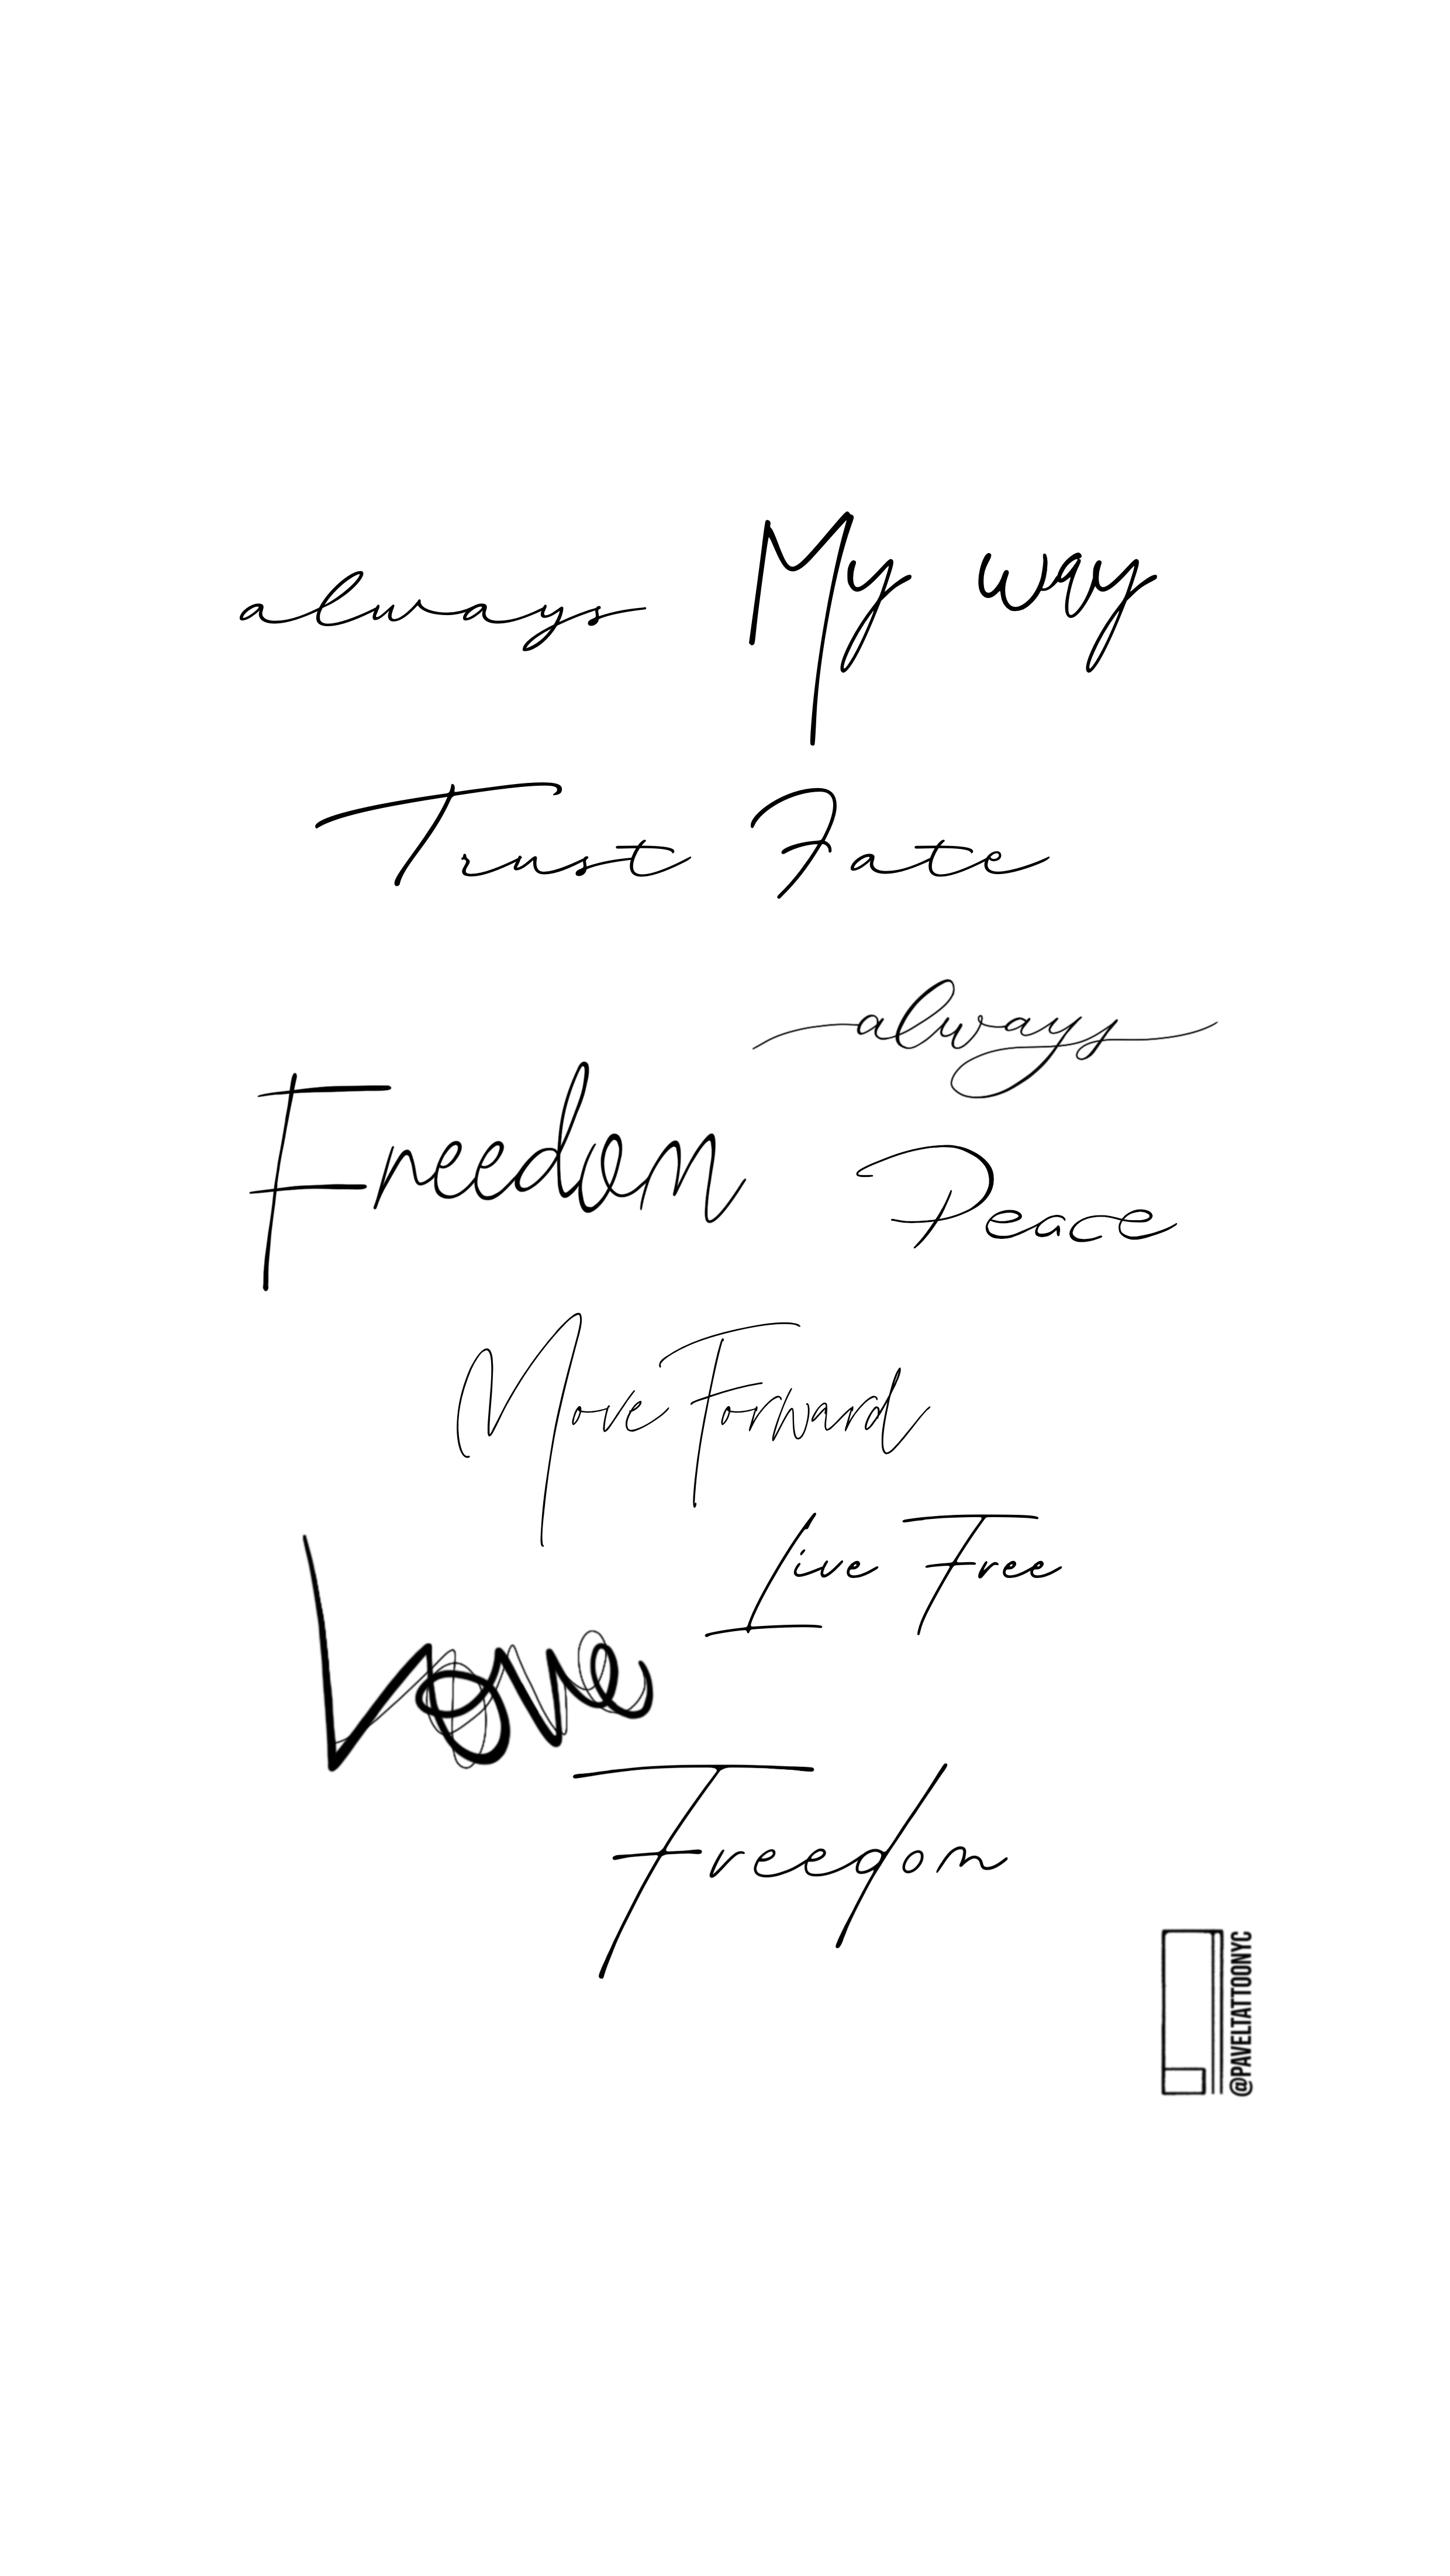 always
My way
Trust Fate
always
Freedom
Peace
Move Forward
Live Free
Love
Freedom
@PAVELTATTOONYC